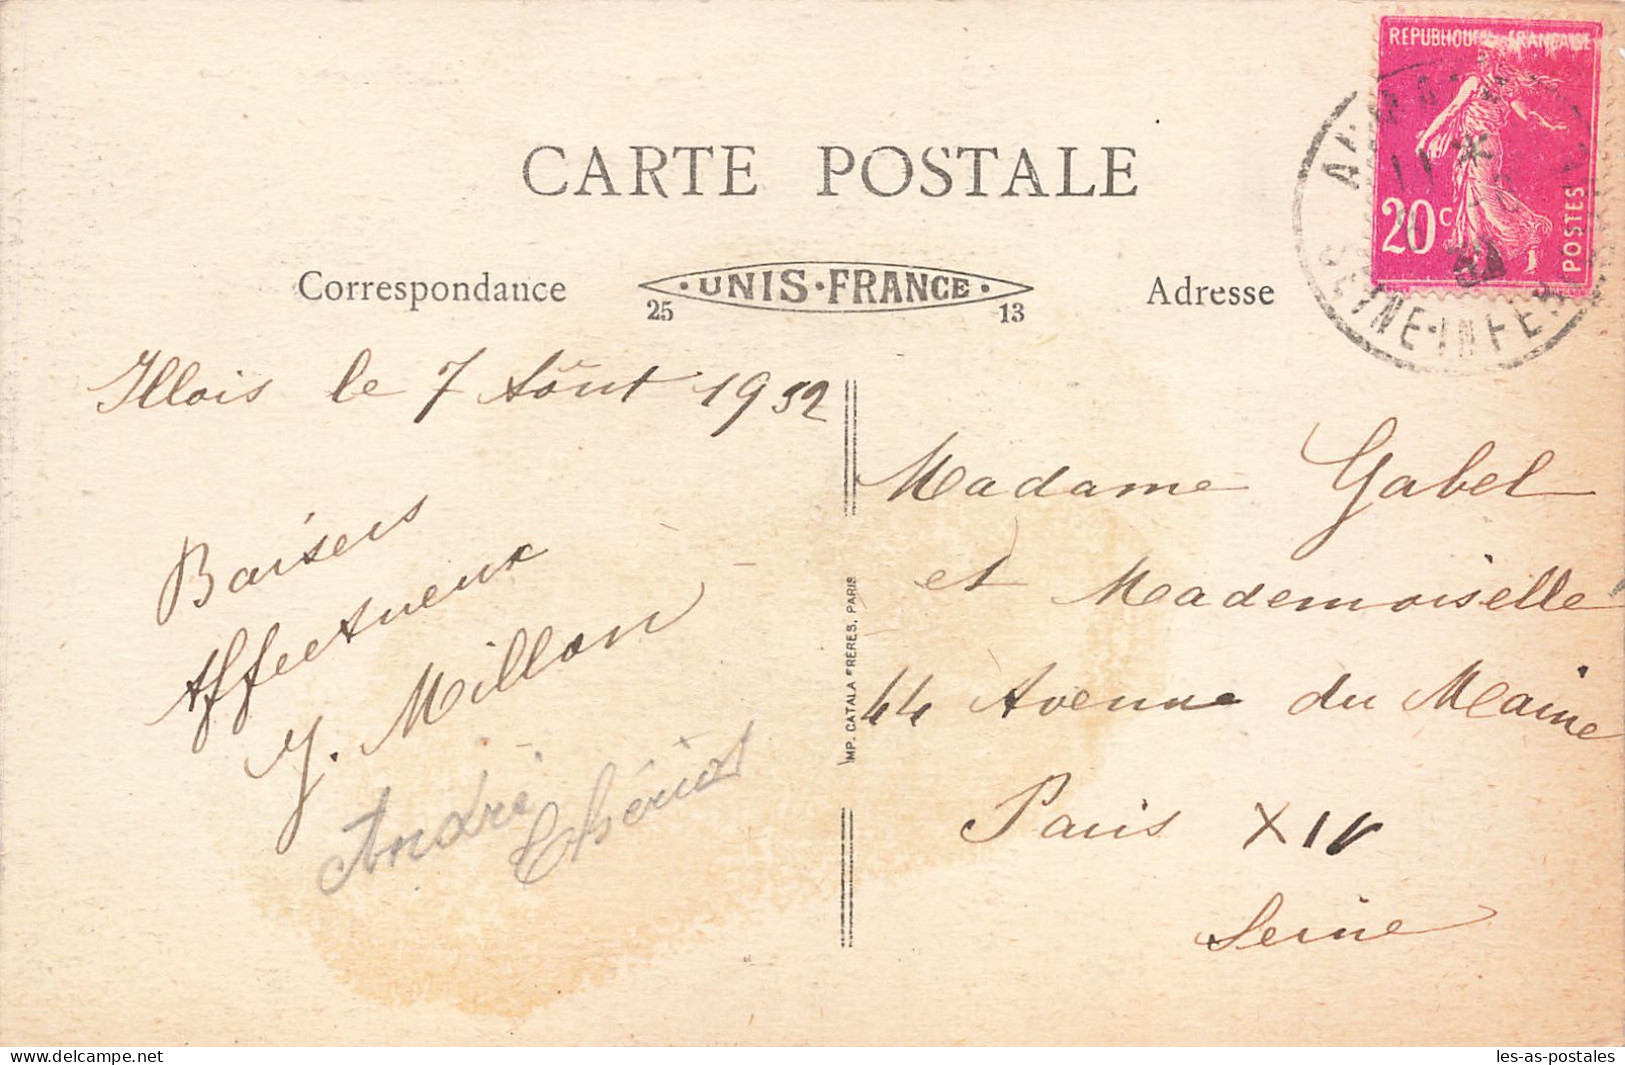 REPUBLIQUE FRANCAISE
20c
POSTES
SEINE-INFER
CARTE POSTALE
Correspondance
UNIS·FRANCE
25
13
Adresse
Illois le 7 Aôut 1932
Baisers
Affectueux
Y. Millon
André
Thériot
IMP. CATALA FRERES, PARIS
Madame Gabel
et Mademoiselle
44 Avenue du Maine
Paris XIV
Seine
delcampe.net
les-as-postales